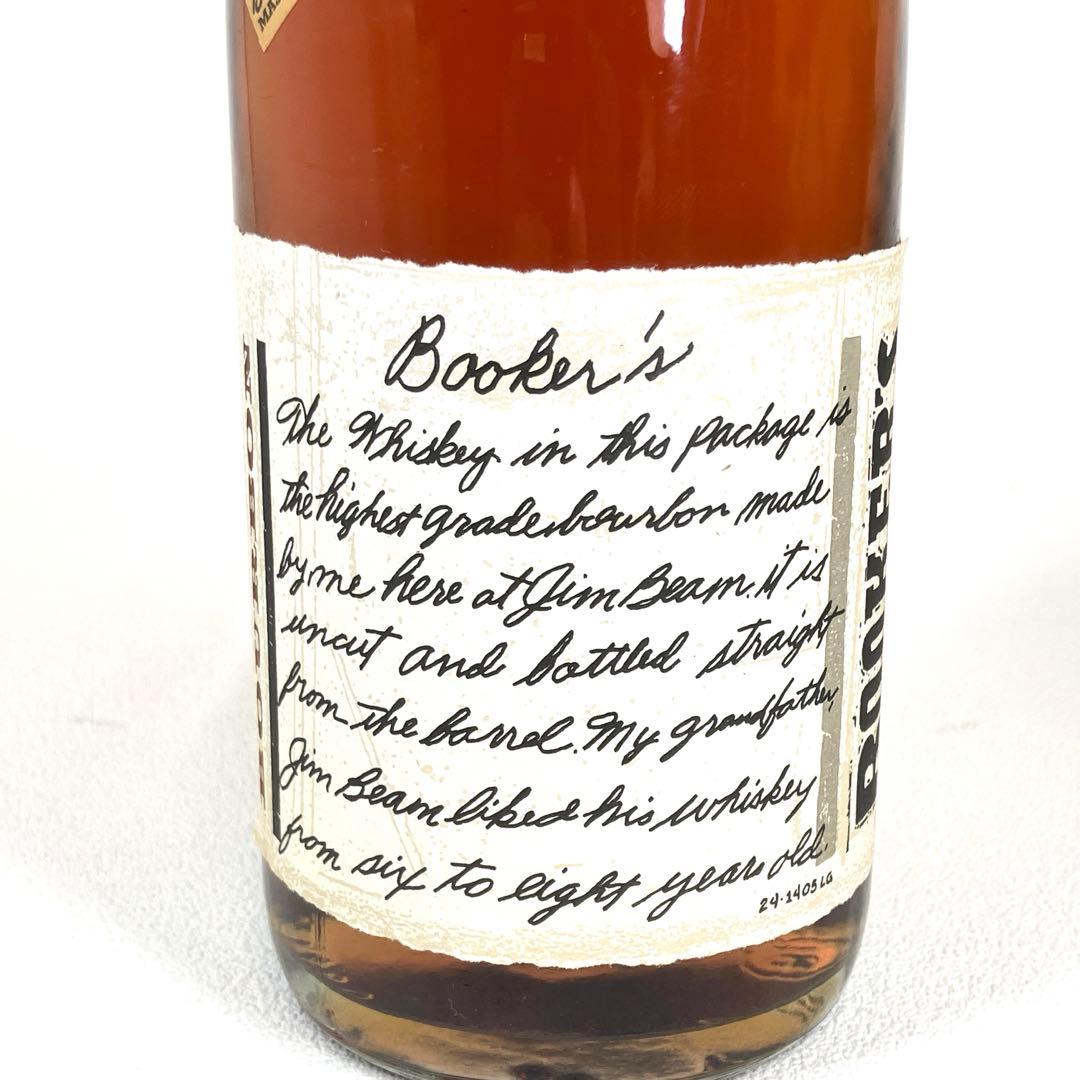 Booker's
The Whiskey in this package is
the highest grade bourbon made
by me here at Jim Beam. it is
uncut and bottled straight
from the barrel. My grandfather,
Jim Beam liked his whiskey
from six to eight years old.
24·1405LG
BOOKER'S